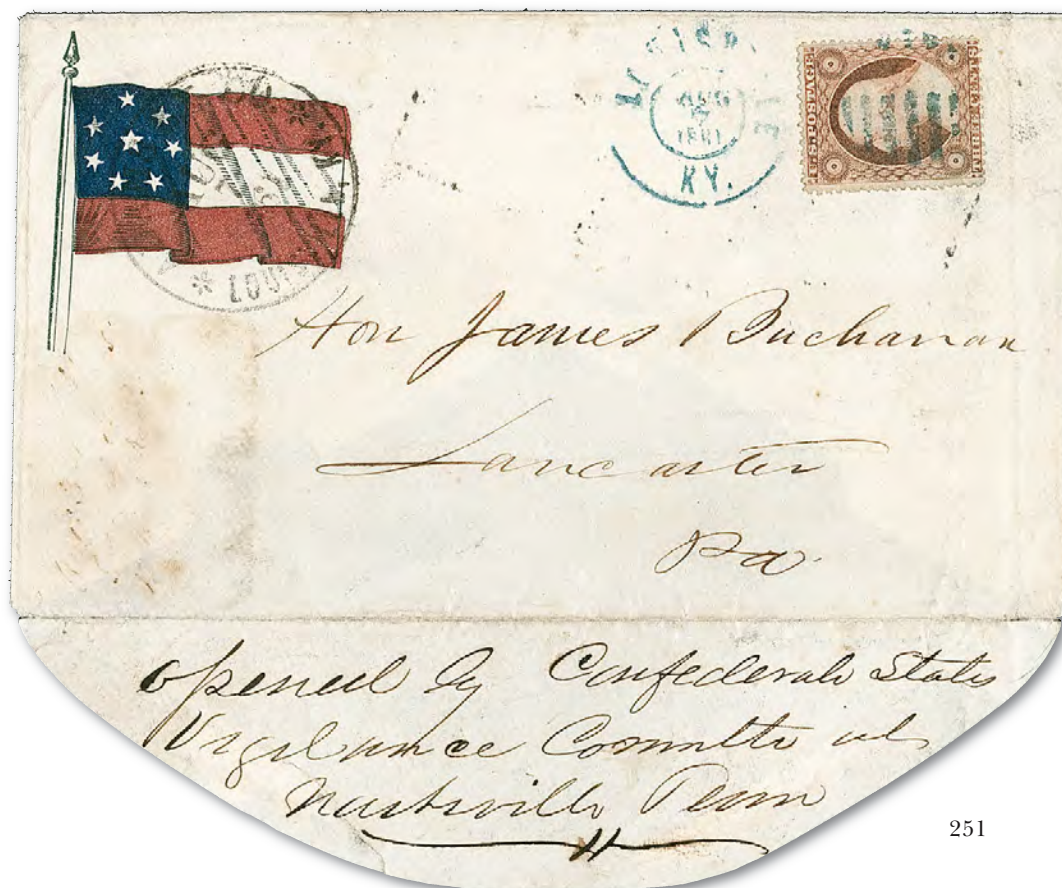 AUG
7
1861
KY.
U.S. POSTAGE
THREE CENTS
Hon James Buchanan
Lancaster
Pa
opened by Confederate States
Vigilance Committe at
Nashville Tenn
251